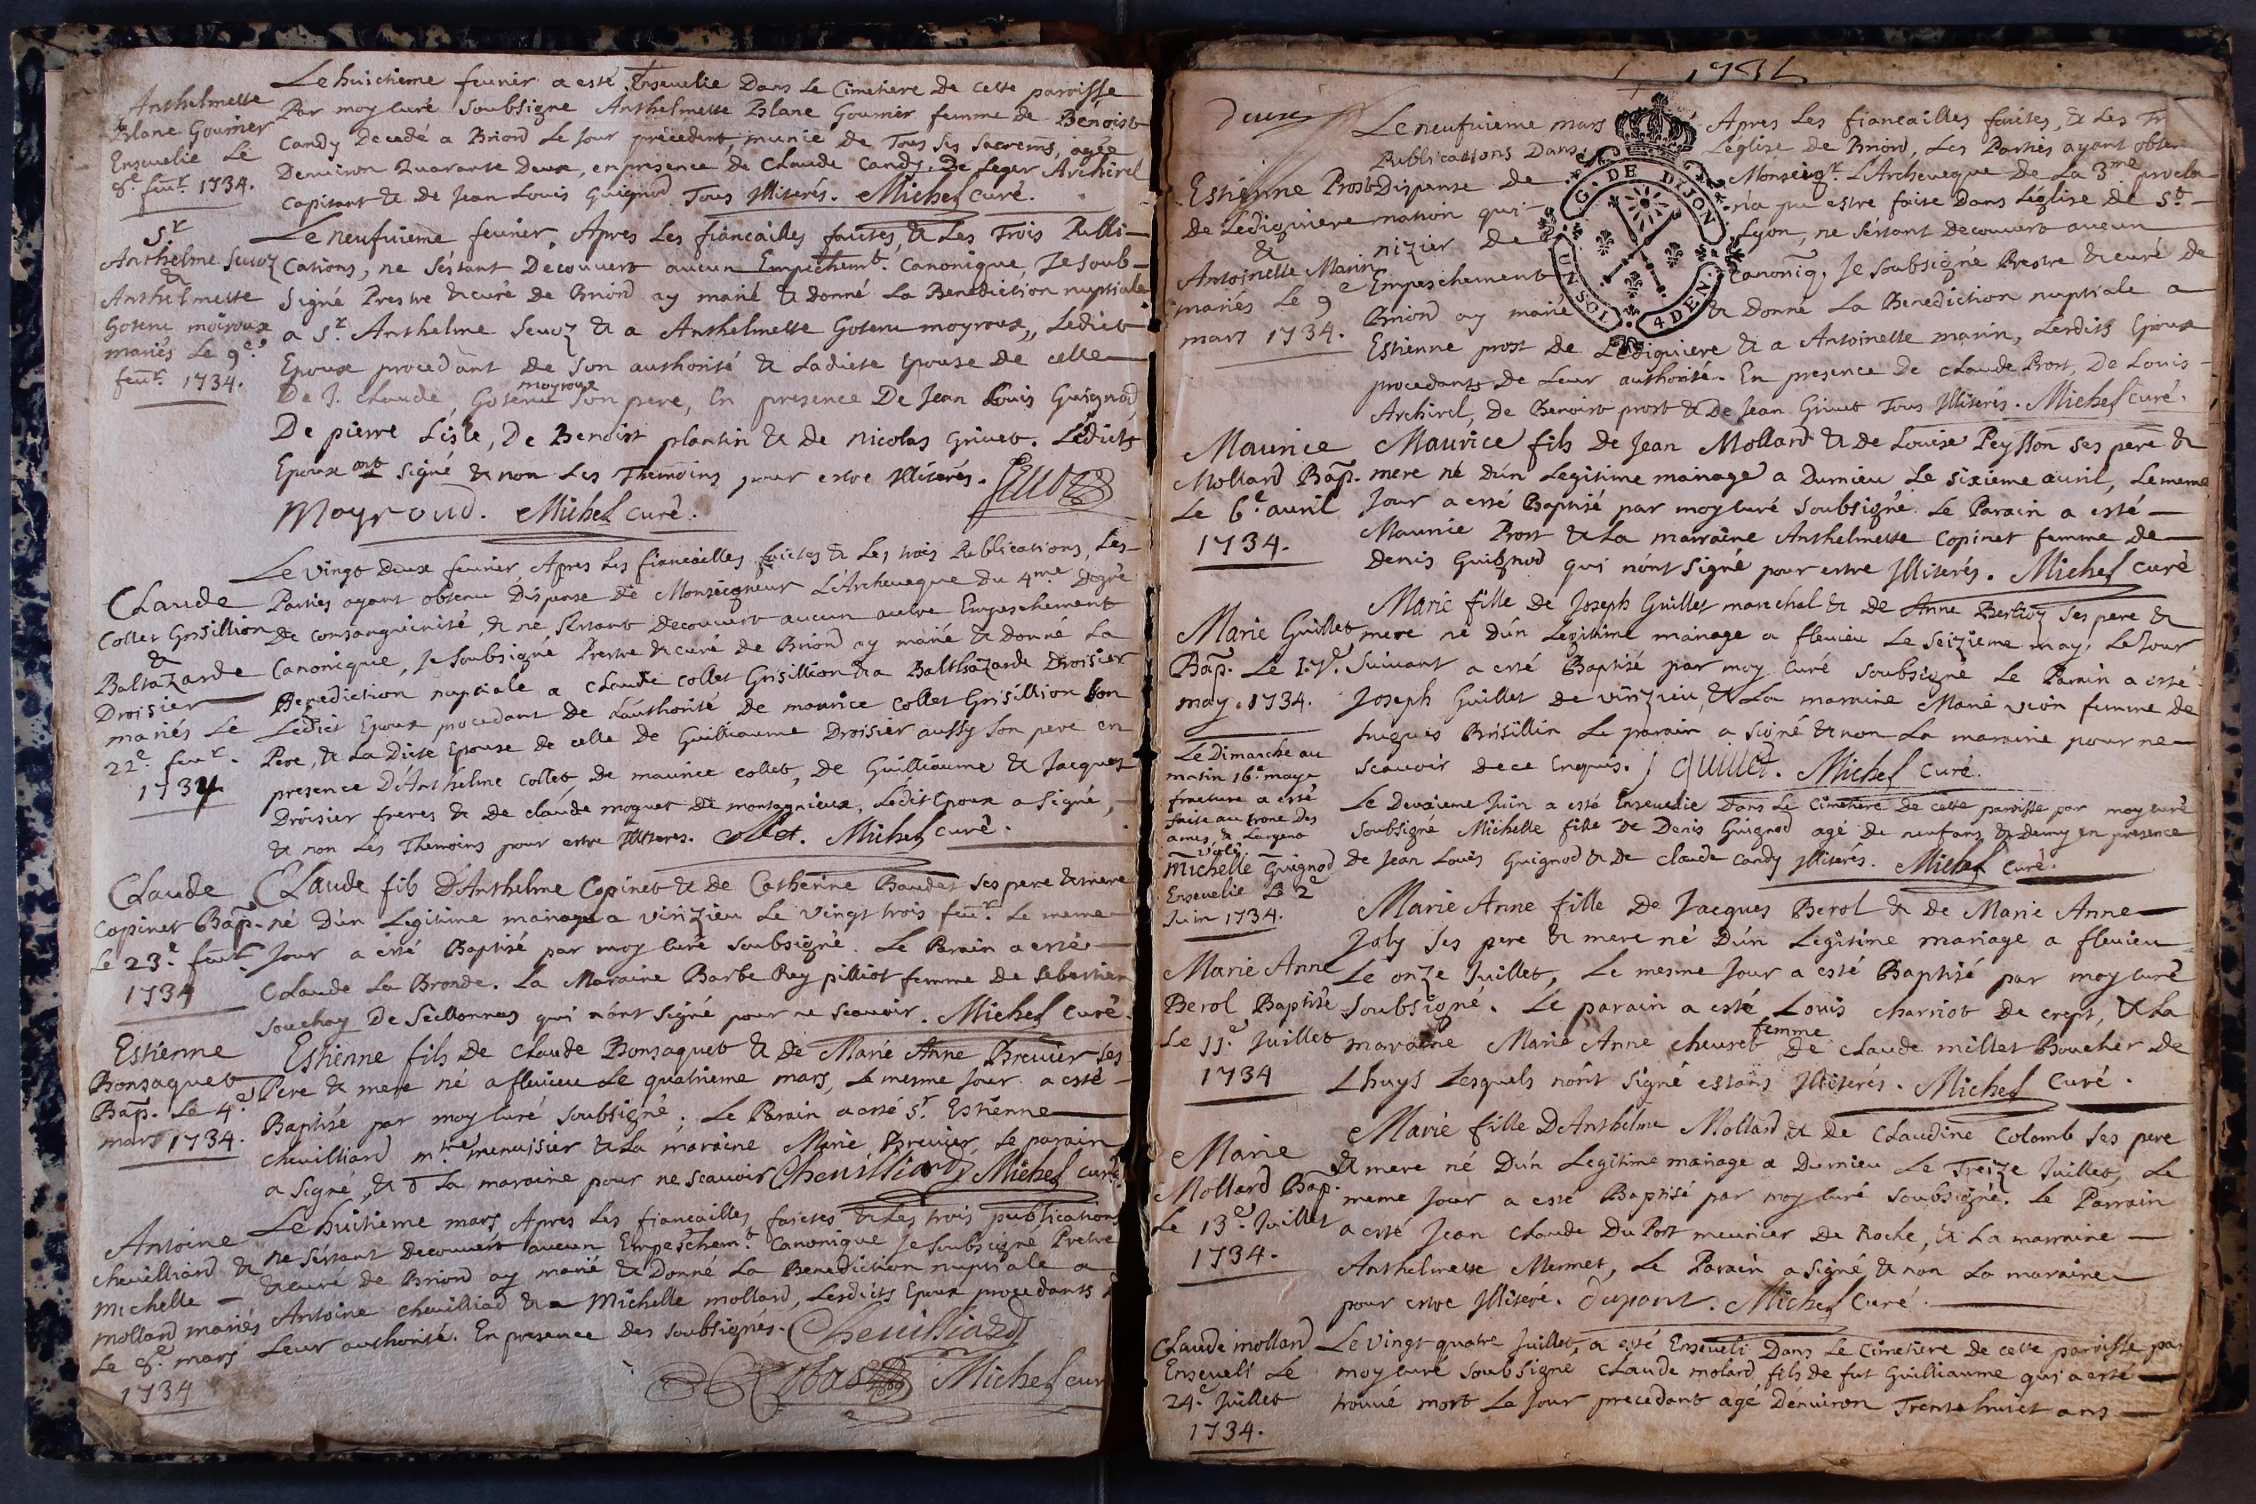 Anthelmette
Blanc Gournier
Ensevelie Le
8.e feur. 1734.
Le huictieme feurier a esté Enseuelie Dans Le Cimetiere de Cette paroisse
Par moy Curé Soubsigné Anthelmette Blanc Gournier femme de Benoist
Candy Decedé a Briord Le Jour précedent, munie de Tous ses Sacremts, agée
Denuiron Quarante Deux, en presence de Claude Candy, De Leger Archirel
Capitant & de Jean Louis Guignod Tous Illiterés. Michel curé.
Sr
Anthelme Seuoz
&
Anthelmette
Goteru moiroux
mariés Le 9e
feur. 1734.
Le neufuieme feurier, Apres Les fiancailles faittes, & Les Trois Publi-
cations, ne s'éstant Decouuert aucun Empechemt. Canonique, Je soub-
signé Prestre & curé de Briord ay marié & donné La Benediction nuptiale
a Sr. Anthelme Seuoz & a Anthelmette Goteru moyroux, Ledict
Epoux procedant de Son authorité & Ladicte Epouse de celle
De J. Claude Goteru moyroux Son pere, En presence De Jean Louis Guignod
De pierre Lisle, De Benoist plantin & de Nicolas Griuet. Lédicts
Epoux ont signé & non Les Themoins pour estre Illiterés. Seuoz
Moyroud. Michel curé.
Claude
Collet Grissillion
&
Baltazarde
Droisier
mariés Le
22e. feur.
1734
Le vingt Deux feurier Apres Les fiancailles faictes & Les trois Publications, Les
Parties ayant obtenu Dispense De Monseigneur L'Archeueque du 4me. degré
de consanguinité, & ne s'estant Decouuert aucun autre Empeschement
Canonique, Je soubsigné Prestre & curé de Briord ay marié & donné La
Benediction nuptiale a Claude Collet Grisillion & a Balthazarde Droisier
Ledict Epoux procedant de L'authorité De maurice Collet Grisillion Son
Pere, & La Dicte Epouse de celle De Guilliaume Droisier aussy Son pere en
presence D'Anthelme Collet de maurice collet, de Guilliaume & Jacques
Droisier freres & de Claude moguet de montagnieux, Ledit Epoux a signé,
& non Les Themoins pour estre Illiteres. Collet. Michel curé.
Claude
Copinet Bap.
Le 23.e feur
1734
Claude fils D'Anthelme Copinet & de Catherine Baudet ses pere & mere
né D'un Legitime mariage a vinzieu Le vingt trois feur. Le meme
Jour a esté Baptisé par moy Curé Soubsigné. Le Parain a esté
Claude La Bronde. La Maraine Barbe Rey pilliot femme de Sebastien
Souchay De Seillonnas qui n'ont signé pour ne scauoir. Michel Curé.
Estienne
Bonsaquet
Bap. Le 4.e
mars 1734.
Estienne fils De Claude Bonsaquet & de Marie Anne Breuier ses
Pere & mere né a fleuieu Le quatrieme mars, Le mesme Jour a esté
Baptisé par moy Curé Soubsigné. Le Parain a esté Sr. Estienne
Cheuilliard mtre menuisier & La maraine Marie Breuier, Le parain
a signé, & La maraine pour ne scauoir Cheuilliard, Michel Curé
Antoine
Cheuilliard &
Michelle
Mollard mariés
Le 8.e mars
1734
Le huitieme mars, Apres Les fiancailles faictes & Les trois publications
ne s'estant decouuert aucun Empeschemt. Canonique Je Soubsigné Prestre
& curé de Briord ay marié & Donné La Benediction nuptiale a
Antoine Cheuilliad & a Michelle mollard, Lesdicts Epoux procedants
Leur authorité. En presence Des soubsignés. Cheuilliard
Michel cur
1734
deux
Estienne Prost
de Lediguiere
&
Antoinette Marin
mariés Le 9e
mars 1734.
Le neufuieme mars Apres Les fiancailles faites, & Les Tr
Publications Dans L'eglise de Briord, Les Parties ayant obten
Dispense de Monseigr. L'Archeueque De La 3me procla
mation qui n'a pu estre faite Dans L'église de St
nizier de Lyon, ne s'éstant Decouuert aucun
Empeschement Canoniq. Je soubsigné Prestre & curé de
Briord ay marié & donné La Benediction nuptiale a
Estienne prost de Lédiguiere & a Antoinette marin, Lesdits Epoux
procedants de Leur authorité. En presence De Claude Prost, De Louis
Archirel, de Benoist prost & De Jean Griuet Tous Illiterés. Michel Curé.
G. DE DIJON
UN SOL
4 DEN.
Maurice
Mollard Bap.
Le 6.e auril
1734.
Maurice fils De Jean Mollard & de Louise Peysson ses pere &
mere né D'un Legitime mariage a Dumieu Le sixieme auril, Le meme
Jour a esté Baptisé par moy Curé Soubsigné. Le Parain a esté
Maurice Prost & La marraine Anthelmette Copinet femme de
Denis Guignod qui n'ont Signé pour estre Illiterés. Michel Curé
Marie Guillet
Bap. Le 17e
may. 1734.
Marie fille De Joseph Guillet marechal & de Anne Bertroz ses pere &
mere né D'un Legitime mariage a fleuieu Le Seizieme may, Le Jour
Suiuant a esté Baptisé par moy Curé Soubsigné Le Parain a esté
Joseph Guillet De vinzieu, & La marraine Marie vion femme de
hugues Brisillin Le parain a signé & non La maraine pour ne
Scauoir De ce Enquis. J Guillet. Michel Curé.
Le Dimanche au
matin 16.e maye
fracture a esté
faite au tronc Des
ames, & L'argent
volé
Michelle Guignod
Enseuelie Le 2e
Juin 1734.
Le Deuxieme Juin a esté Enseuelie Dans Le Cimetiere De Cette paroisse par moy Curé
Soubsigné Michelle fille De Denis Guignod agé De neuf ans & Demy en presence
de Jean Louis Guignod & De Claude Candy Illiterés. Michel Curé.
Marie Anne
Berol Baptisé
Le 11.e Juillet
1734
Marie Anne fille De Jacques Berol & de Marie Anne
Joly ses pere & mere né D'un Legitime mariage a fleuieu
Le onze Juillet, Le mesme Jour a esté Baptisé par moy Curé
Soubsigné. Le parain a esté Louis Charriot De crept, & La
maraine Marie Anne Cheuret femme De Claude millet Boucher De
Lhuys Lesquels n'ont signé estants Illiterés. Michel Curé.
Marie
Mollard Bap.
Le 13.e Juillet
1734.
Marie fille D'Anthelme Mollard & De Claudine Colomb ses pere
& mere né D'un Legitime mariage a Dumieu Le Treize Juillet, Le
meme Jour a esté Baptisé par moy Curé Soubsigné. Le Parrain
a esté Jean Claude Du Port meunier De Roche, & La marraine
Anthelmette Mermet, Le Parain a signé & non La maraine
pour estre Illiteré. Dupont. Michel Curé.
Claude mollard
Enseueli Le
24.e Juillet
1734.
Le vingt quatre Juillet, a esté Enseueli Dans Le Cimetiere De cette paroisse par
moy Curé Soubsigné Claude molard fils de fut Guilliaume qui a esté
trouué mort Le Jour precedant agé D'enuiron Trente huict ans